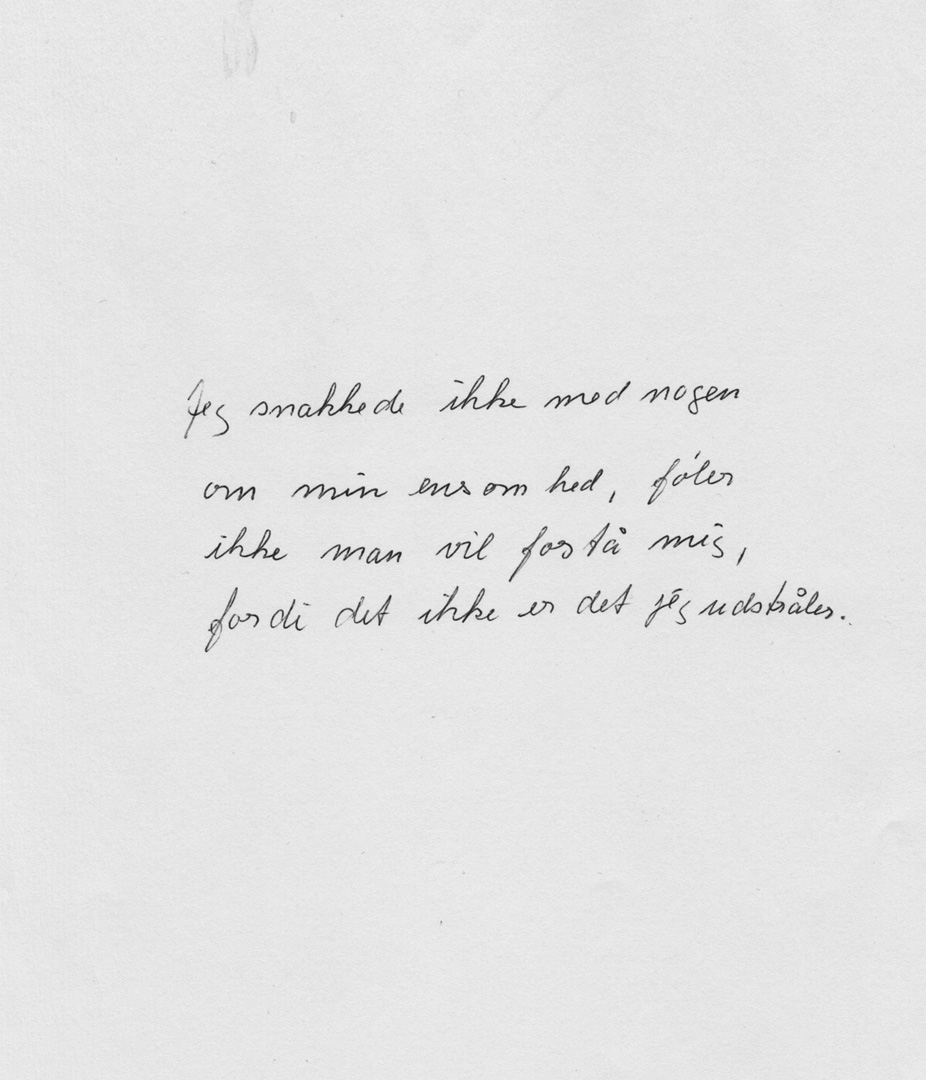 Jeg snakkede ikke med nogen
om min ensomhed, føler
ikke man vil forstå mig,
fordi det ikke er det jeg udstråler.